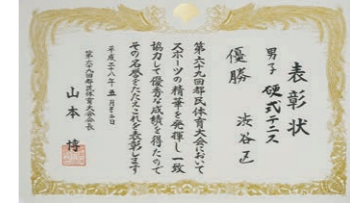 表彰状
男子 硬式テニス
優勝 渋谷区
第六十九回都民体育大会において
スポーツの精華を発揮し一致
協力して優秀な成績を得たので
その名誉をたたえこれを表彰します
平成二十八年五月
第六十九回都民体育大会会長
山本 博